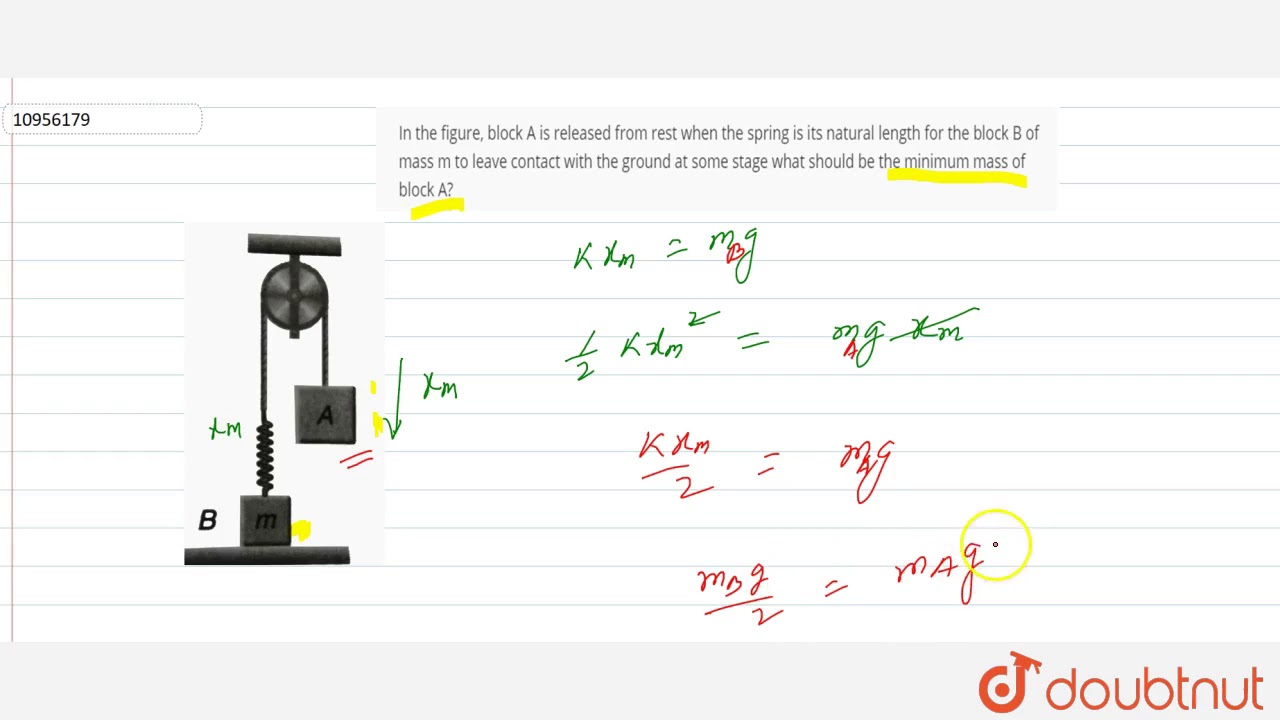 10956179
In the figure, block A is released from rest when the spring is its natural length for the block B of
mass m to leave contact with the ground at some stage what should be the minimum mass of
block A?
K xm = mBg
1/2 K xm² = mAg xm
xm
A
xm
K xm / 2 = mAg
B m
mBg / 2 = mAg
doubtnut